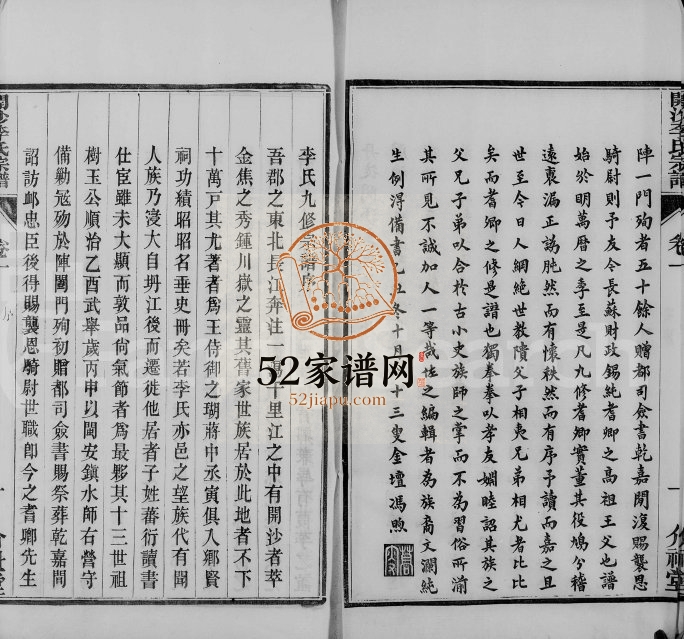 開沙李氏宗譜
卷一
陣一門殉者五十餘人贈都司僉書乾嘉閒復賜襲恩
騎尉則予友今長蘇財政錫純耆卿之高祖王父也譜
始於明萬曆之季至是凡九修耆卿實董其役鳩兮稽
遠裒漏正譌肫然而有懷秩然而有序予讀而嘉之且
世至今日人綱絶世教隤父子相夷兄弟相尤者比比
矣而耆卿之修是譜也獨拳拳以孝友媚睦詔其族之
父兄子弟以合於古小史族師之掌而不為習俗所湔
其所見不誠加人一等哉他之編輯者為族裔文瀾純
生例得備書
冬十月
十三叟金壇馮煦
李氏九修宗譜
吾郡之東北長江奔注一
十里江之中有開沙者萃
金焦之秀鍾川嶽之靈其舊家世族居於此地者不下
十萬戸其尤著者為王侍御之瑚蔣中丞寅俱入鄉賢
祠功績昭昭名垂史冊矣若李氏亦邑之望族代有聞
人族乃浸大自坍江後而遷徙他居者子姓蕃衍讀書
仕宦雖未大顯而敦品尚氣節者為最夥其十三世祖
樹玉公順治乙酉武舉歲丙申以閩安鎮水師右營守
備勦冦殁於陣闔門殉初贈都司僉書賜祭葬乾嘉間
詔訪邺忠臣後得賜襲恩騎尉世職卽今之耆卿先生
開沙李氏宗譜
卷一
52家谱网
52jiapu.com